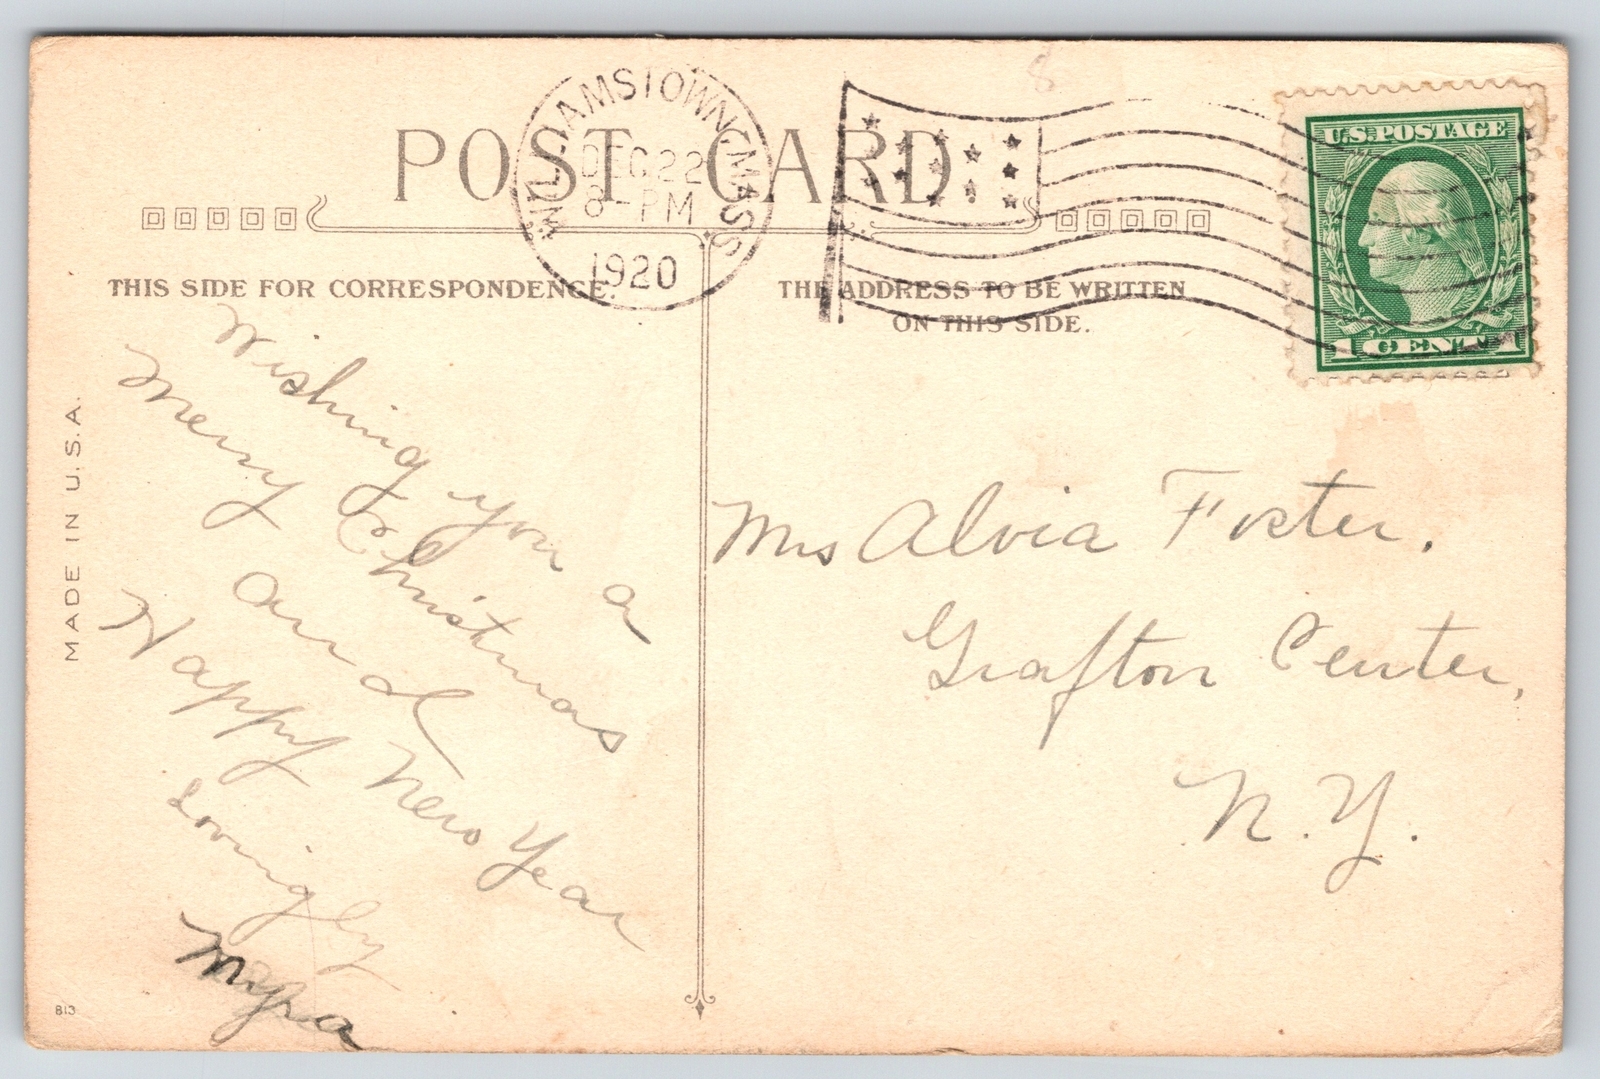 8
POST CARD
WILLIAMSTOWN, MASS
DEC 22
8-PM
1920
U.S. POSTAGE
1 CENT 1
THIS SIDE FOR CORRESPONDENCE.
THE ADDRESS TO BE WRITTEN
ON THIS SIDE.
MADE IN U.S.A.
Wishing you a
Merry Christmas
and
Happy New Year
Lovingly
Myra
Mrs Alvia Foster.
Grafton Center,
N.Y.
813